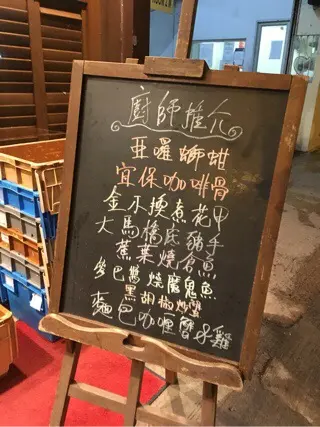 廚師推介
亞曜螄蚶
宜保咖啡骨
金不換煮花甲
大馬橋底豬手
蕉葉燒倉魚
參巴醬燒魔鬼魚
黑胡椒炒蟹
麵包咖喱蟹&雞